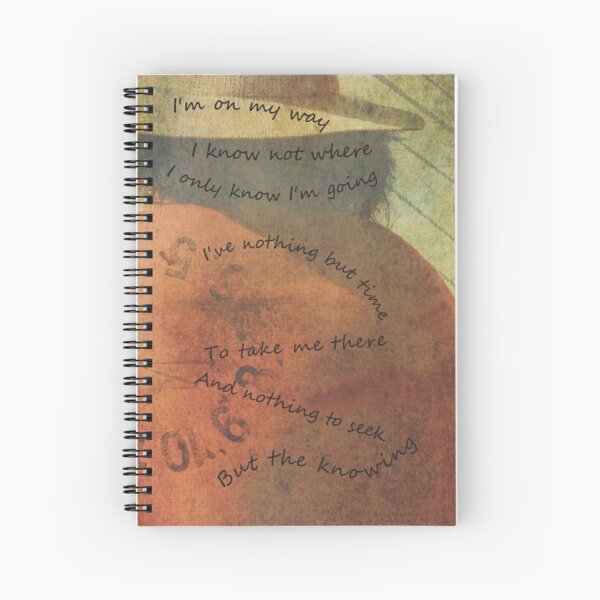 I'm on my way
I know not where
I only know I'm going
I've nothing but time
5
To take me there
8
And nothing to seek
9
10
But the knowing